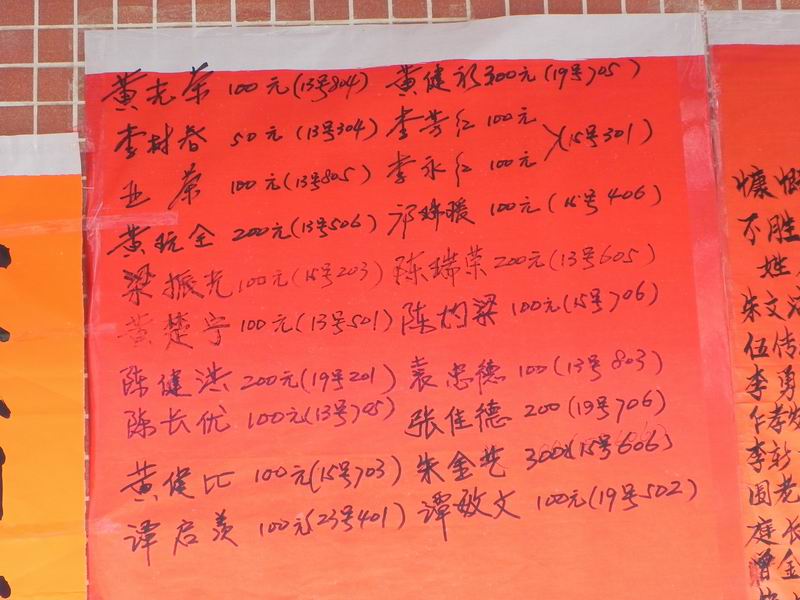 黄志荣 100元(13号804) 黄健 300元(19号705)
李树春 50元(13号304) 李芳红 100元
(15号301)
荣 100元(13号805) 李永红 100元
黄 全 200元(13号506) 暖 100元(15号406)
梁振光 100元(15号203) 陈瑞荣 200元(13号605)
黄楚宁 100元(13号501) 陈灼梁 100元(15号706)
陈健洪 200元(19号201) 袁忠德 100(13号803)
陈长优 100元(13号705) 张佳德 200(19号706)
黄 100元(15号703) 朱金 300(15号606)
谭启 100元(23号401) 谭敏文 100元(19号502)
慷慨
不胜
姓
朱文
伍传
李勇
孝
李新
国老
庭长
曾金